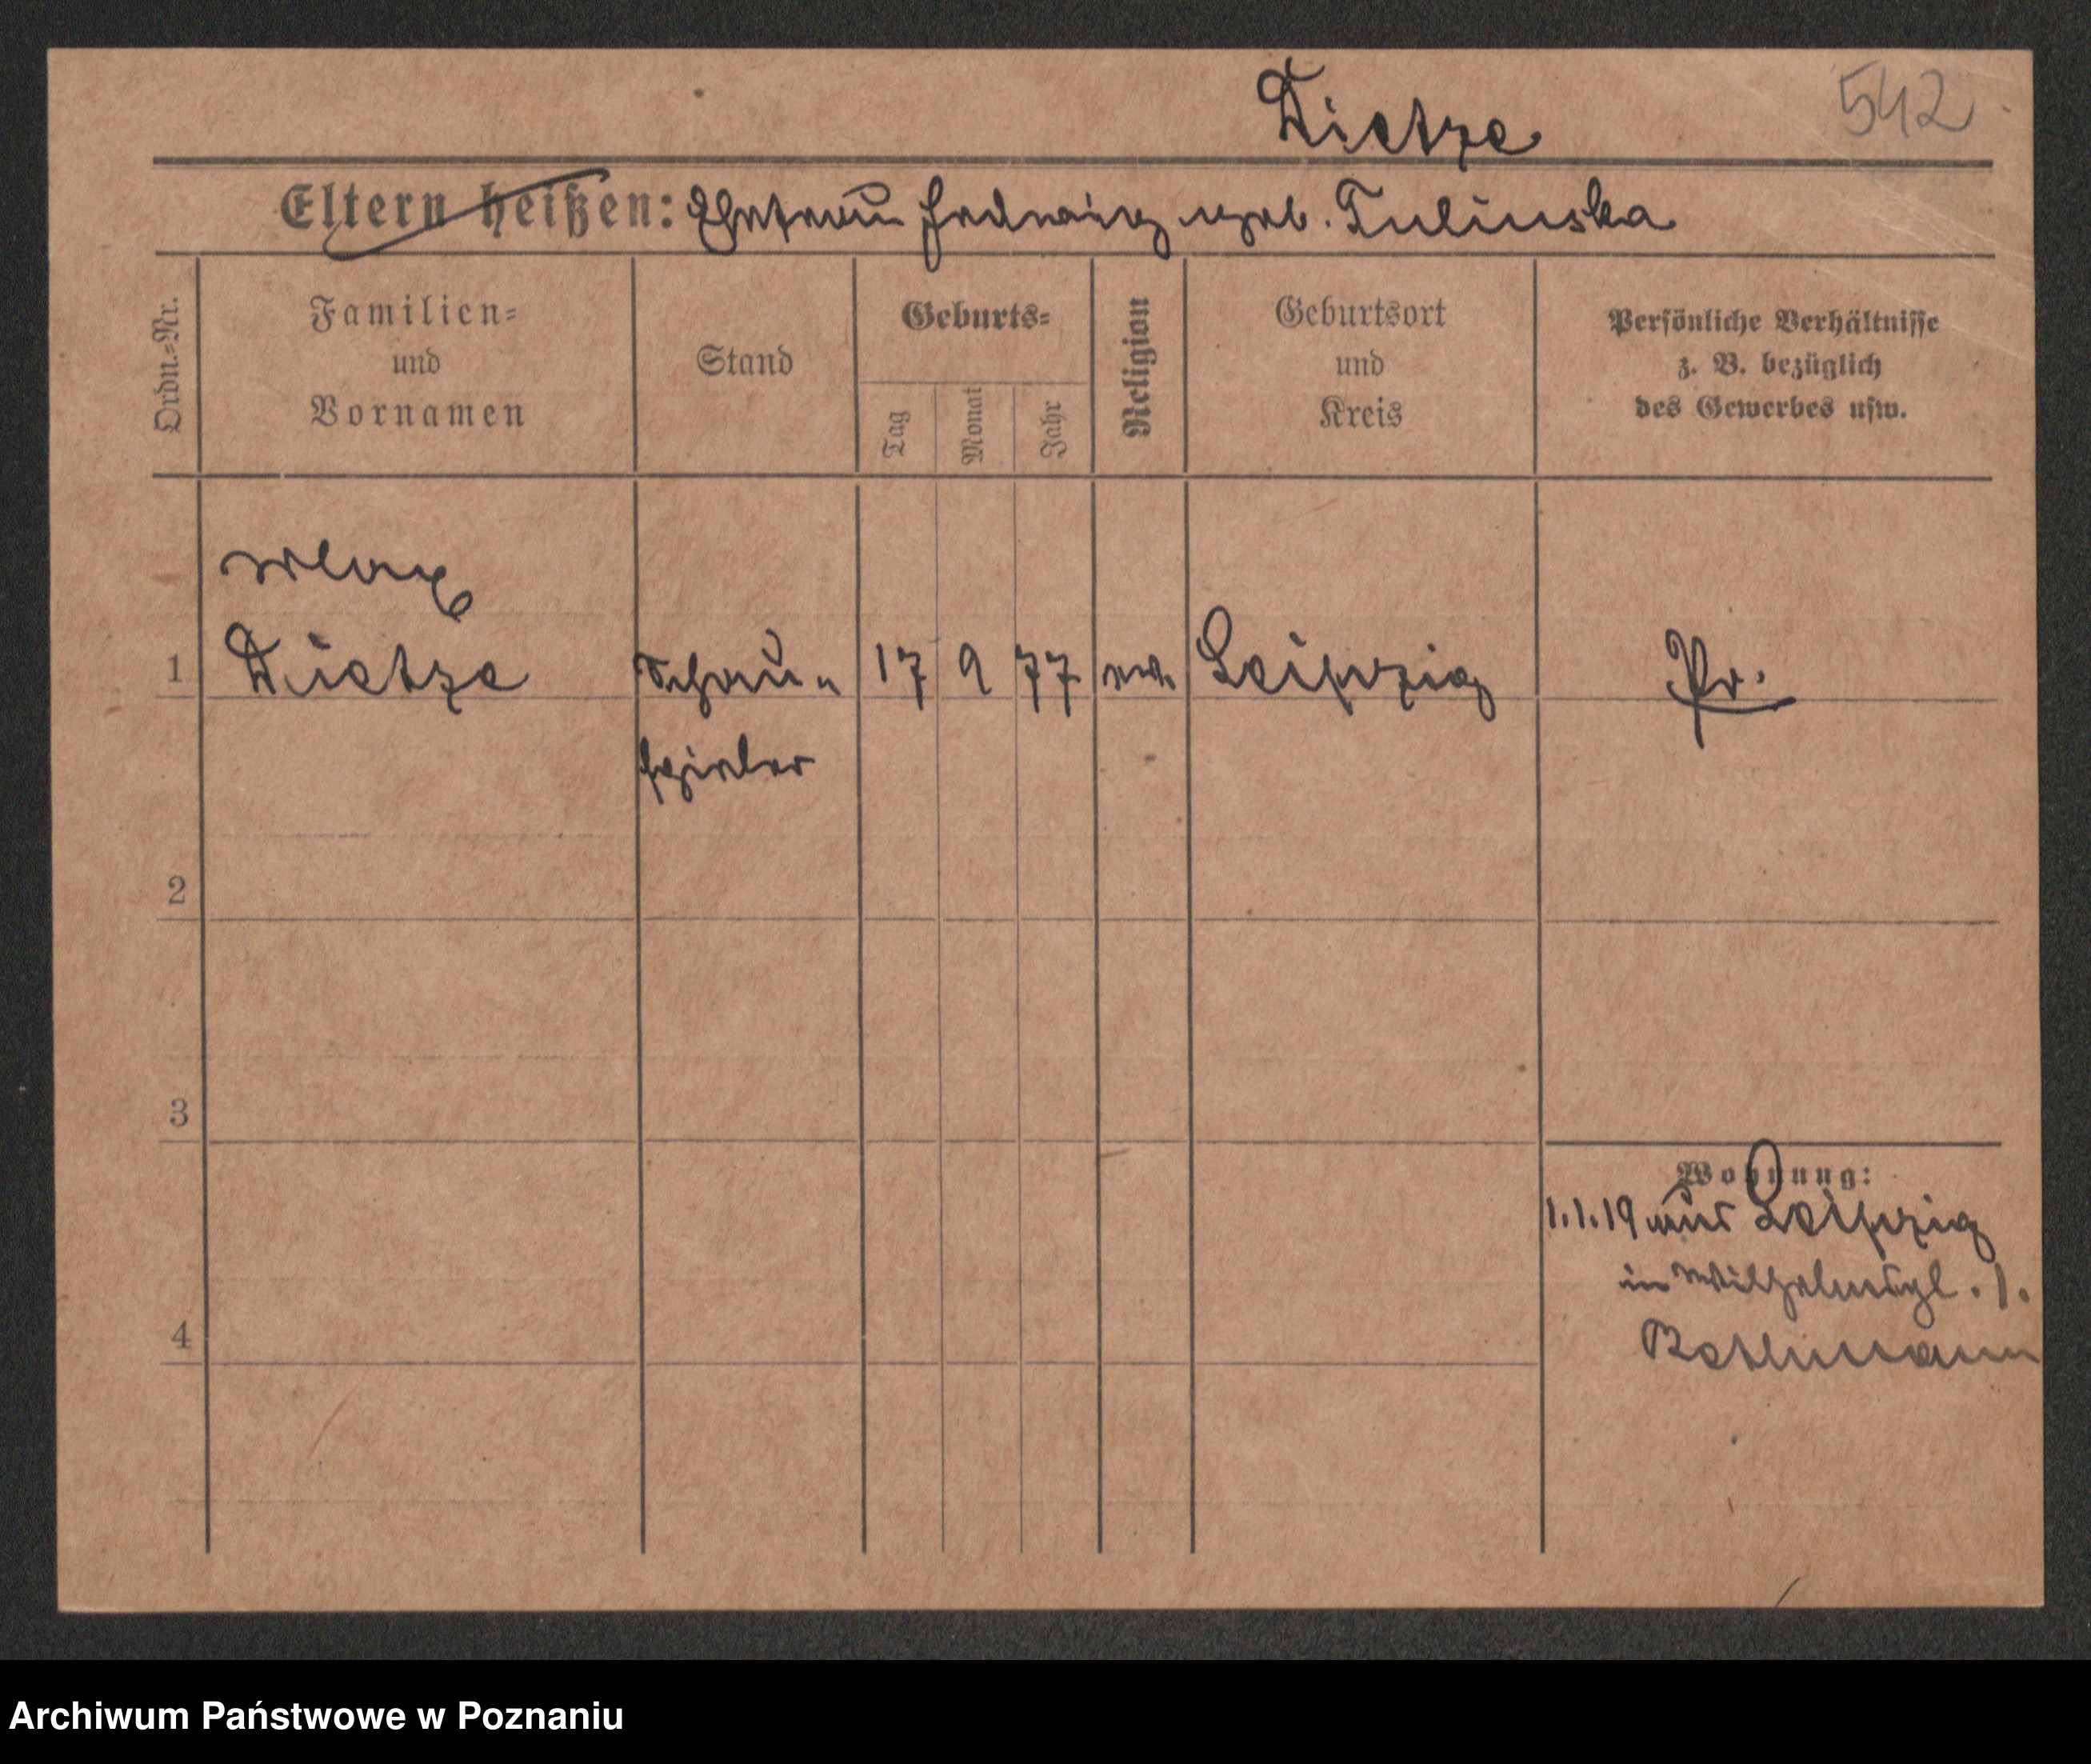 Dietze 542
Eltern heißen: Ehefrau Hedwig geb. Tulinska
Ordn.=Nr.
Familien=
und
Vornamen
Stand
Geburts=
Tag
Monat
Jahr
Religion
Geburtsort
und
Kreis
Persönliche Verhältnisse
z. B. bezüglich
des Gewerbes usw.
Max
1 Dietze Schau- 17 9 77 ev. Leipzig Pr.
spieler
2
3
Wohnung:
1.1.19 aus Leipzig
in Wilhelmspl. 1.
4
Archiwum Państwowe w Poznaniu